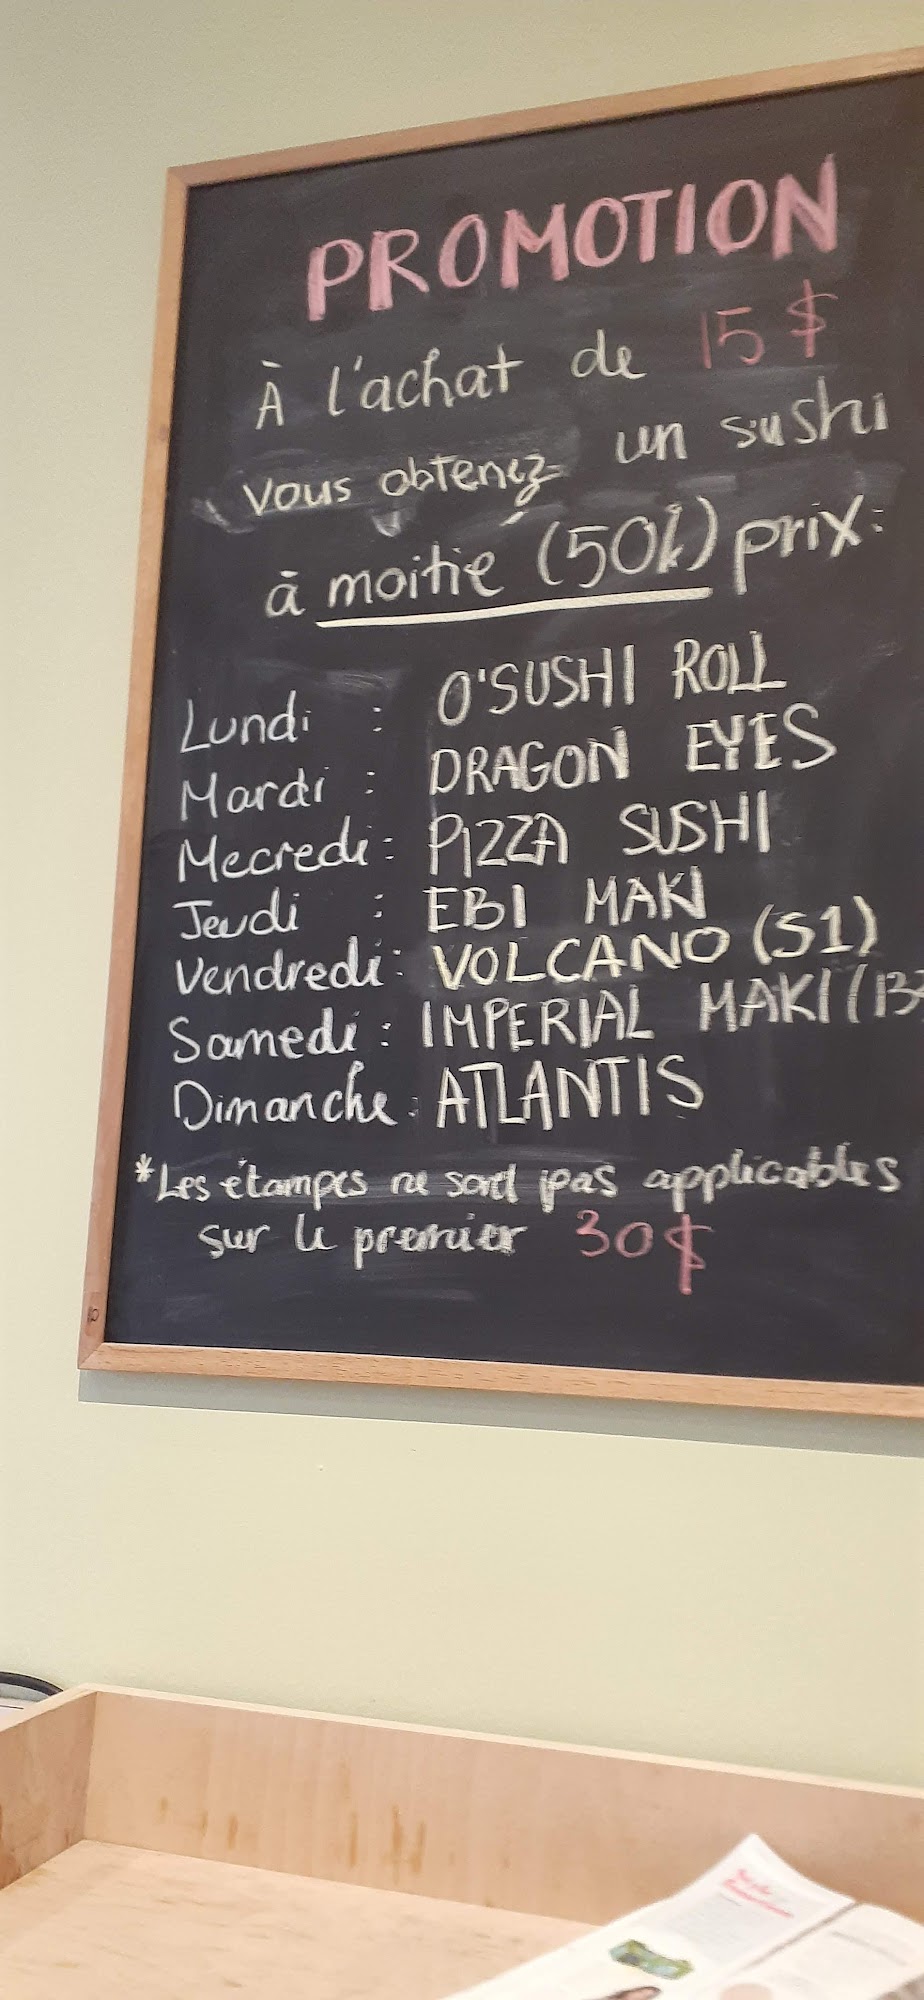 PROMOTION
À l'achat de 15$
vous obtenez un sushi
à moitié (50%) prix:
Lundi : O'SUSHI ROLL
Mardi : DRAGON EYES
Mecredi: PIZZA SUSHI
Jeudi : EBI MAKI
Vendredi: VOLCANO (S1)
Samedi: IMPERIAL MAKI (B2
Dimanche: ATLANTIS
*Les étampes ne sont pas applicables
sur le premier 30$